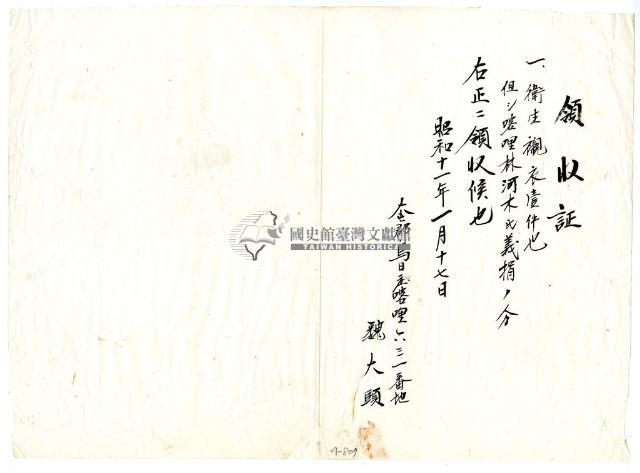 領收証
一、衛生襯衣壹件也
但シ喀哩林河木氏義捐ノ分
右正ニ領収候也
昭和十一年一月十七日
仝郡烏日庄喀哩六三一番地
魏大頭
國史館臺灣文獻館
TAIWAN HISTORICA
9-809